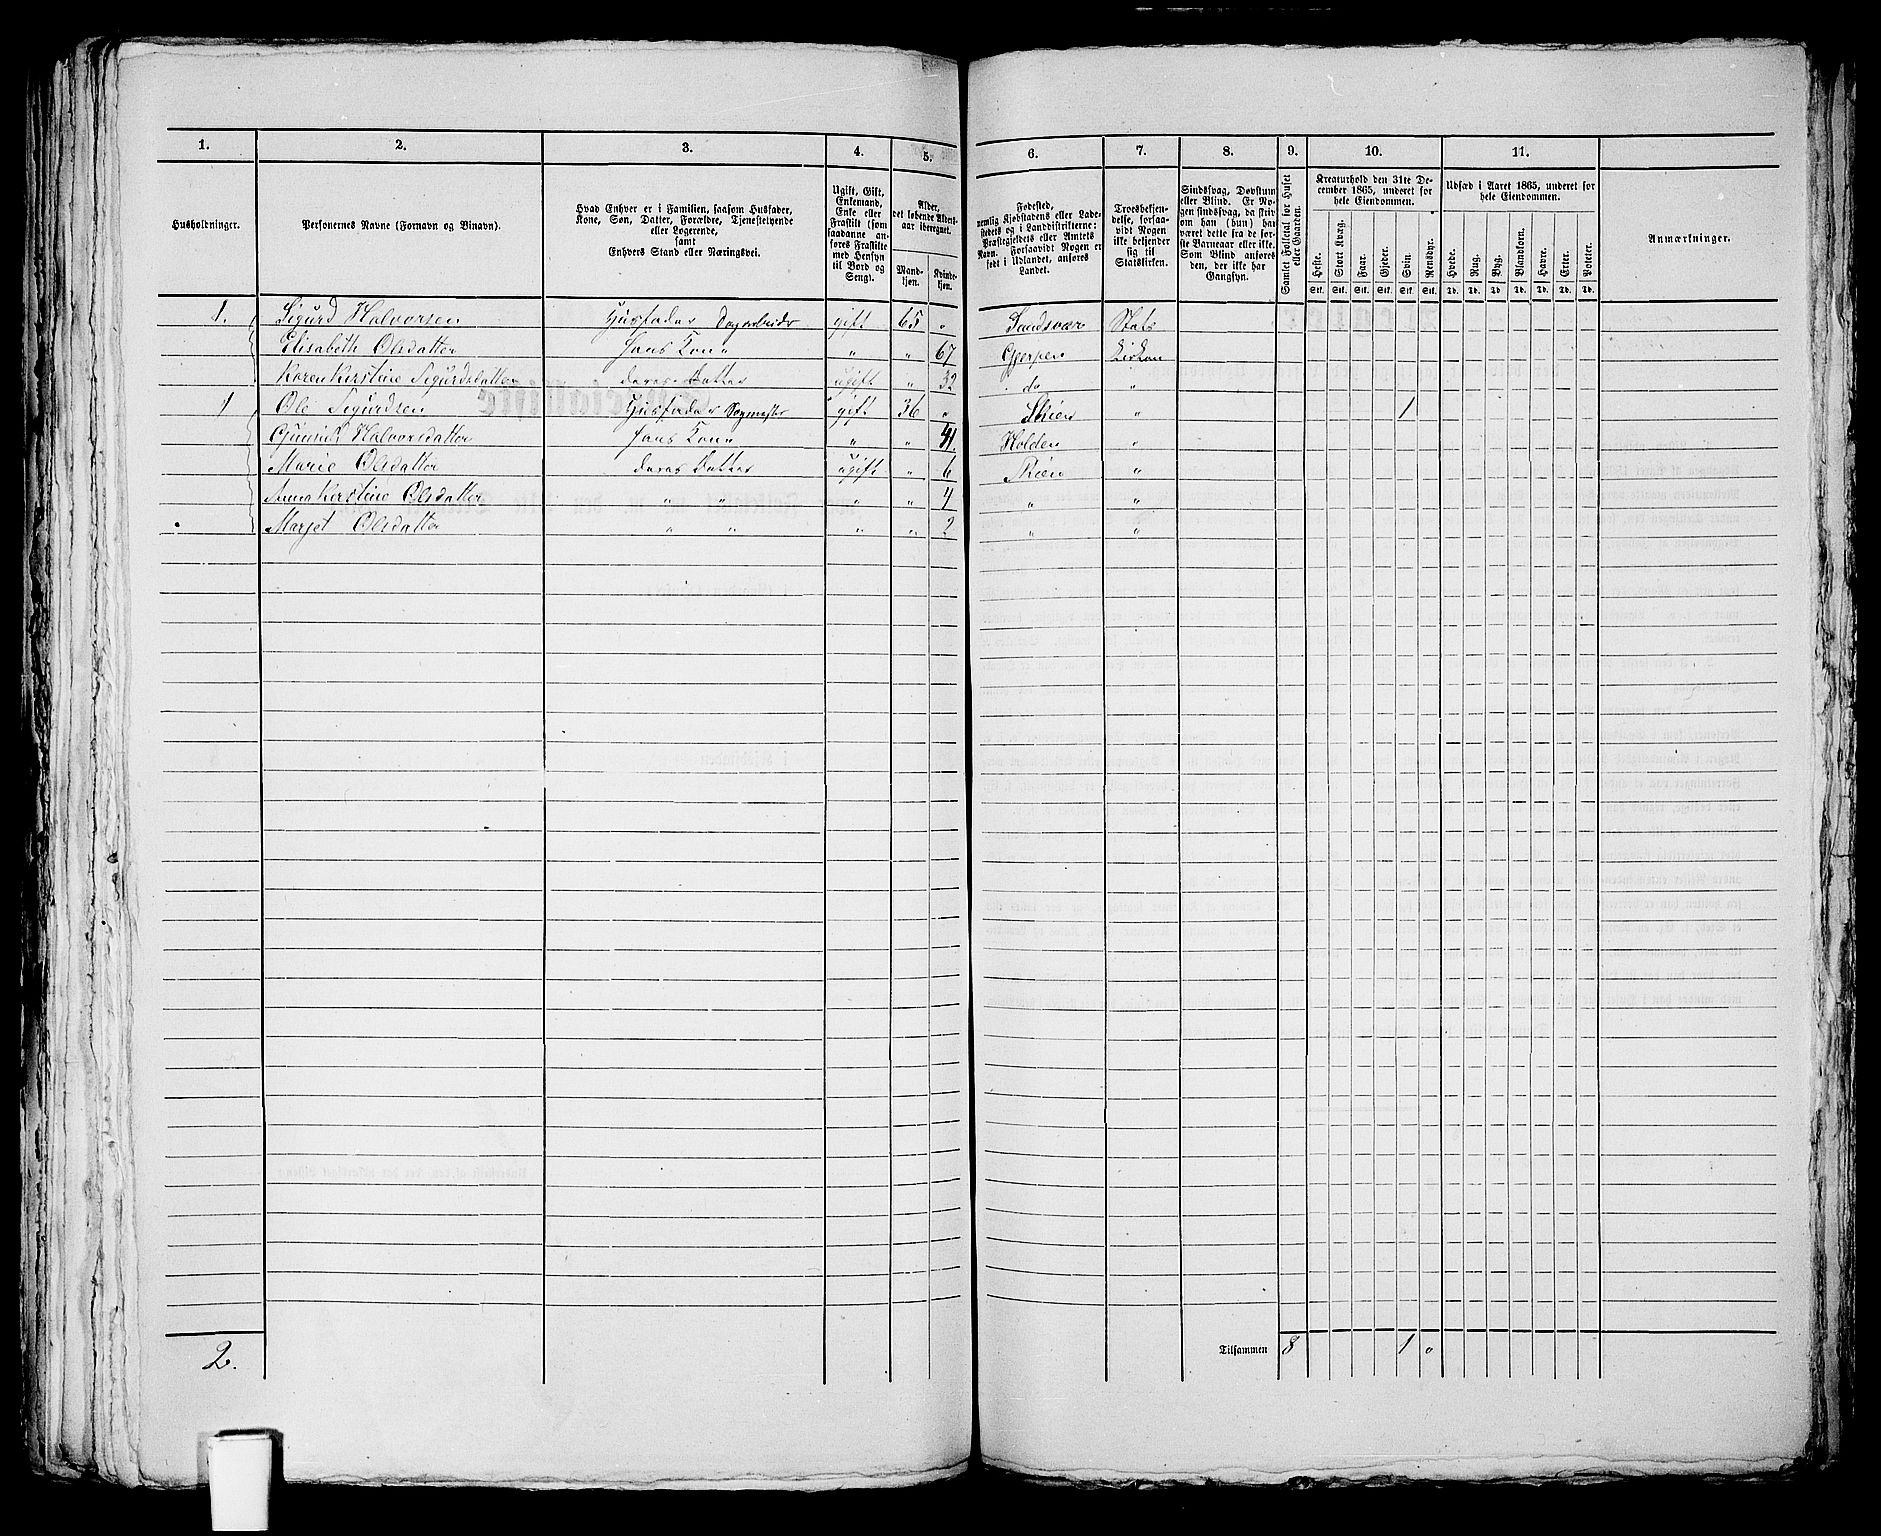 1. 2. 3. 4. 5. 6. 7. 8. 9. 10. 11.
Husholdninger.
Personernes Navne (Fornavn og Binavn).
Hvad Enhver er i Familien, saasom Husfader,
Kone, Søn, Datter, Forældre, Tjenestetyende
eller Logerende,
samt
Enhvers Stand eller Næringsvei.
Ugift, Gift,
Enkemand,
Enke eller
Fraskilt (som
saadanne an-
føres Fraskilte
med Hensyn
til Bord og
Seng).
Alder,
det løbende Alders-
aar iberegnet.
Mand-
kjøn.
Kvinde-
kjøn.
Fødested,
nemlig Kjøbstadens eller Lade-
stedets og i Landdistrikterne:
Præstegjeldets eller Amtets
Navn. Forsaavidt Nogen er
født i Udlandet, anføres
Landet.
Troesbekjen-
delse, forsaa-
vidt Nogen
ikke bekjender
sig til
Statskirken.
Sindssvag, Døvstum
eller Blind. Er No-
gen sindssvag, da skriv
om han (hun) har
været dette fra de før-
ste Barneaar eller ikke.
Som Blind anføres
den, der ikke har
Gangsyn.
Samlet Folketal for Huset
eller Gaarden.
Kreaturhold den 31te De-
cember 1865, underet for
hele Eiendommen.
Heste. Stort Kvæg. Faar. Gjeder. Svin. Rensdyr.
Stk. Stk. Stk. Stk. Stk. Stk.
Udsæd i Aaret 1865, underet for
hele Eiendommen.
Hvede. Rug. Byg. Blandkorn. Havre. Erter. Poteter.
Td. Td. Td. Td. Td. Td. Td.
Anmærkninger.
1. Sigurd Halvorsen Husfader gift 65 " Sandsvær Stats
Elisabeth Olsdatter hans Kone " " 67 Gjerpen kirken
Karen Kirstine Sigurdsdatter deres Datter ugift " 32 do "
1 Ole Sigurdsen Husfader Sagmester gift 36 " Skien " 1
Halvorsdatter hans Kone " " 41. Holden "
Marie Olsdatter deres Datter ugift " 6 Skien "
Anna Kirstine Olsdatter " " " " 4 " "
Marjet Olsdatter " " " " 2 " "
2. Tilsammen 8 1 "